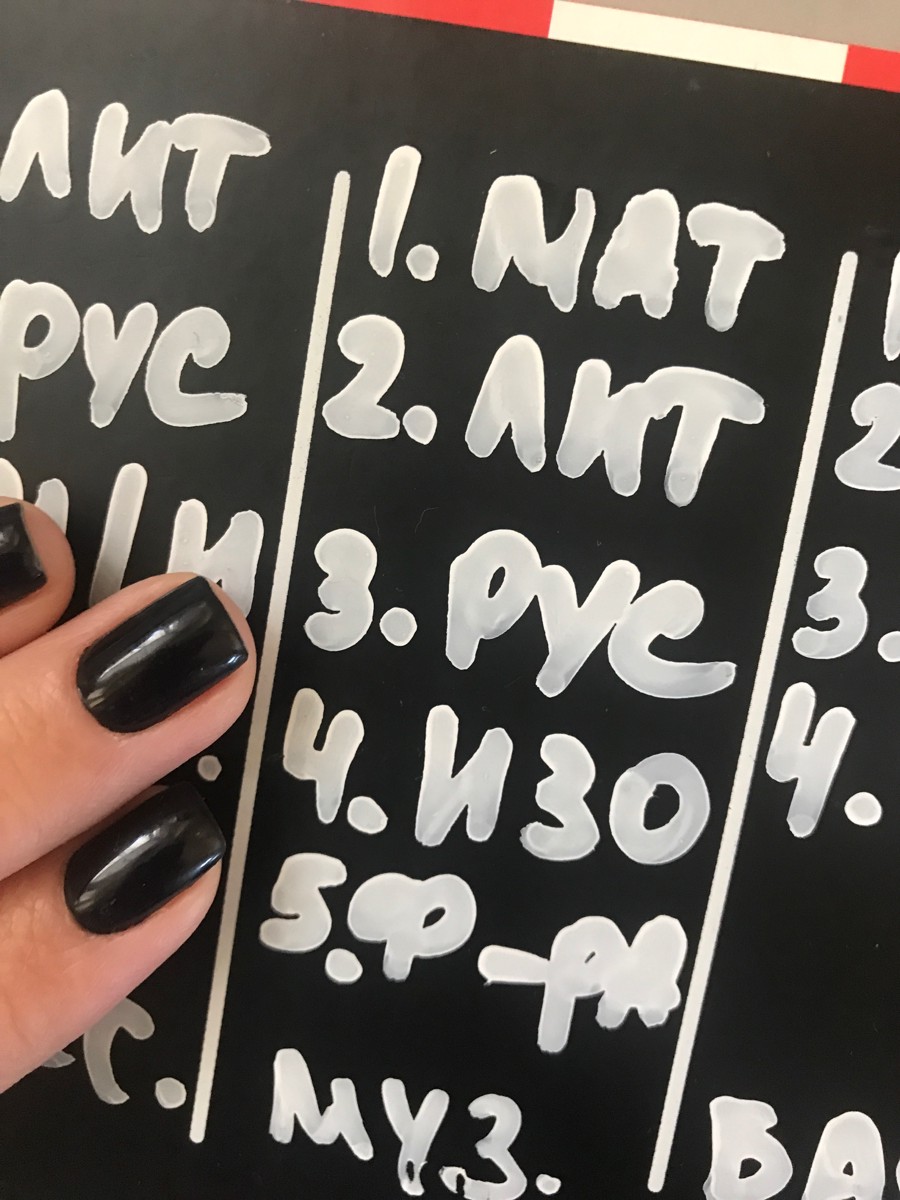 ЛИТ
РУС
1. МАТ
2. ЛИТ
3. РУС
4. ИЗО
5. Ф-РА
МУЗ.
2
3.
4.